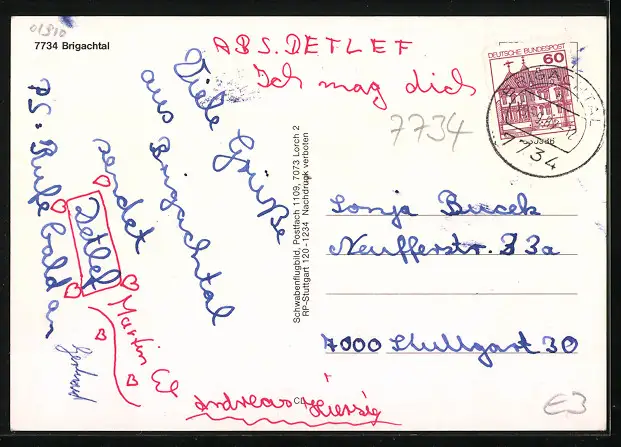 01910
7734 Brigachtal
ABS. DETLEF
Ich mag dich
Viele Grüße
aus Brigachtal
sendet
Detlef
PS: Rufe bald an
Martin
Andreas
7734
DEUTSCHE BUNDESPOST
60
BRIGACHTAL
7734
Schwabenflugbild, Postfach 1109, 7073 Lorch 2
RP-Stuttgart 120-1234 Nachdruck verboten
Sonja Bucek
Neufferstr. 33a
7000 Stuttgart 30
E3